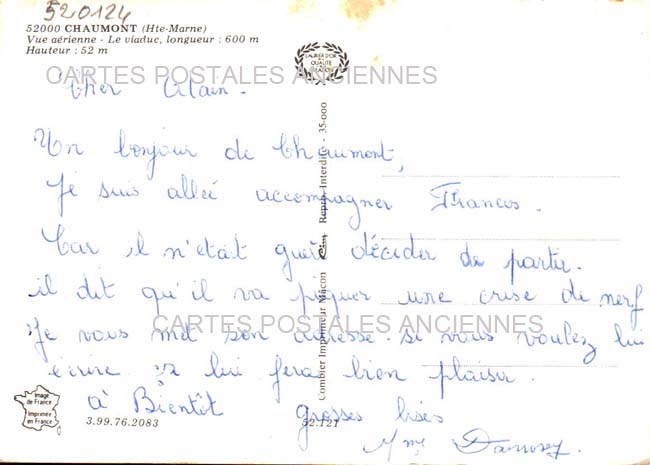 520124
52000 CHAUMONT (Hte-Marne)
Vue aérienne - Le viaduc, longueur : 600 m
Hauteur : 52 m
CARTES POSTALES ANCIENNES
Cher Alain -
Un bonjour de Chaumont,
Je suis alleé accompagner Francis.
Car il n'était guère décider de partir.
il dit qu'il va piquer une crise de nerf
Je vous met son adresse. si vous voulez lui
CARTES POSTALES ANCIENNES
écrire ça lui fera bien plaisir.
à Bientôt grosses bises
Mme
Image de France
Imprimée en France
3.99.76.2083
52.121
Combier Imprimeur Mâcon Cim Repro. Interdite - 35-000